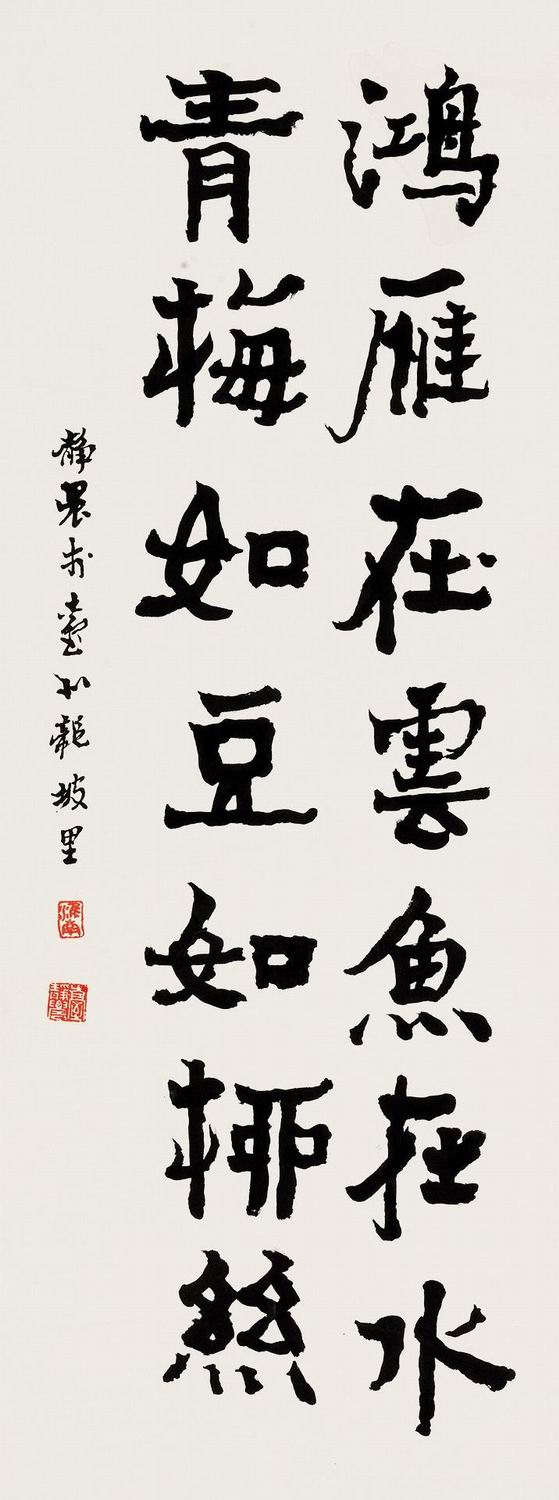 鴻雁在雲魚在水
青梅如豆如桺絲
靜農於臺北龍坡里